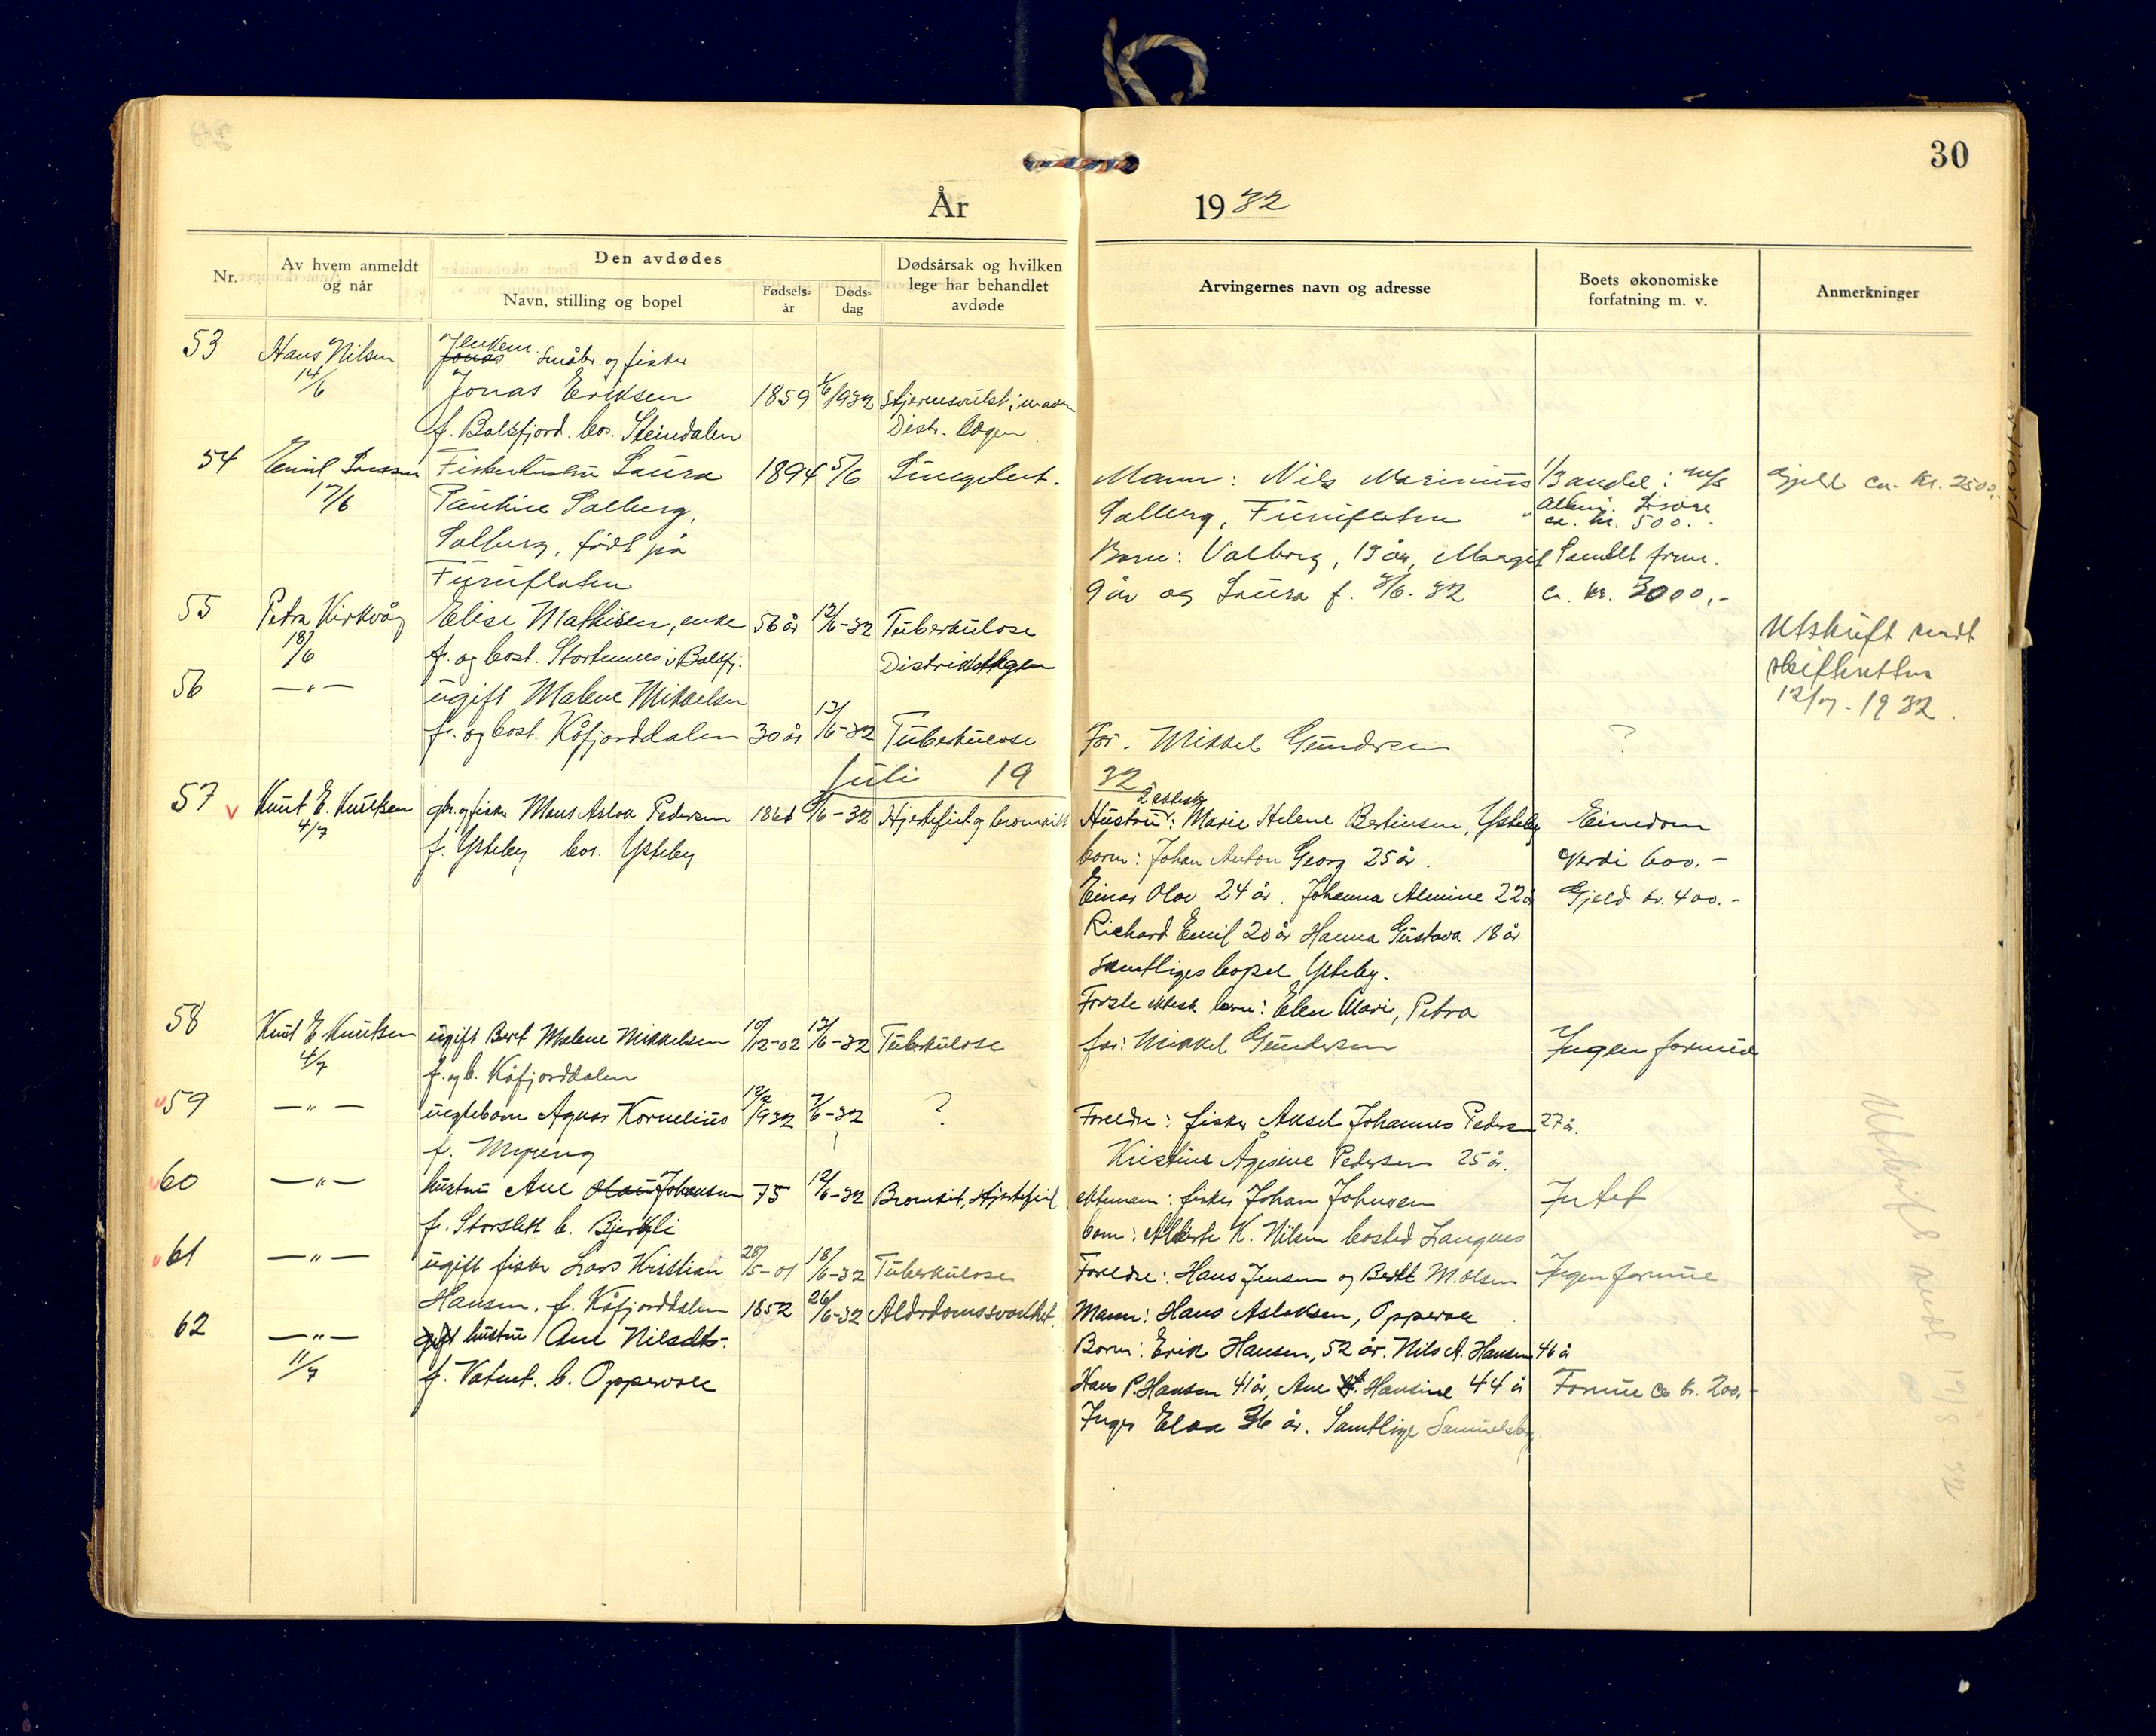 30
År 1932
Nr.
Av hvem anmeldt og når
Den avdødes
Navn, stilling og bopel
Fødsels-år
Døds-dag
Dødsårsak og hvilken lege har behandlet avdøde
Arvingernes navn og adresse
Boets økonomiske forfatning m. v.
Anmerkninger
53 Hans Nilsen 14/6
Jonas Småbr. og fisker
Jonas Eriksen 1859 1932 i maven
f. Balsfjord. bos. Steindalen Distr. lægen
54 Emil 17/6 Laura 1894 5/6 Lungebet.
Pauline Solberg,
Solberg, født på
Furuflaten
Mann: Nils Marinius 1/3 andel i m/s Gjeld ca. kr. 2500,-
Solberg, Furuflaten ca. kr. 500.-
Barn: Valborg, 13 år, Margit
9 år og Laura f. /6. 32 ca. kr. 3000,-
55 Petra Kirkvåg 18/6 Elise Mathisen, enke 56 år 12/6-32 Tuberkulose
f. og bost. Stortennes i Balsfj. Distriktslægen
Utskrift sendt
skifteretten
12/7-1932.
56 —"— ugift Malene Mikkelsen
f. og bost. Kåfjorddalen 30 år 13/6-32 Tuberkulose
Far. Mikkel Gundersen ?
Juli 1932
57 Knut E. Knutsen 4/7 gbr. og fisker Mons Aslak Pedersen /6-32 Hjertefeil og bronkitt
f. Ysteby bos. Ysteby
Hustru: 2 ektesk. Marie Helene Bertinsen, Ysteby Eiendom
barn: Johan Anton Georg 25 år. Verdi 600.-
Einar Olav 24 år. Johanna Almine 22 år Gjeld kr. 400.-
Richard Emil 20 år Hanna Gustava 18 år
samtliges bopel Ysteby.
Første ektesk. barn: Elen Marie, Petra
58 Knut E Knutsen 4/7 ugift Berit Malene Mikkelsen 10/12-02 13/6-32 Tuberkulose
f. og b. Kåfjorddalen
far: Mikkel Gundersen Ingen formue
59 —"— uegtebarn Agnar Kornelius 1932 7/6-32 ?
f. Myreng
Foreldre: fisker Aksel Johannes Pedersen 27 år.
Kristine Ågesine Pedersen 25 år.
60 —"— hustru Ane Johansen 75 12/6-32 Bronkit, Hjertefeil
f. Storslett b. Bjerkli
ektemann: fisker Johan Johnsen Intet
barn: Alberte K. Nilsen bosted Langnes
61 —"— ugift fisker Lars Kristian 28/5-01 18/6-32 Tuberkulose
Hansen. f. Kåfjorddalen
Foreldre: Hans Jensen og Berit M. Olsen Ingen formue
62 —"— 11/7 gift hustru Ane Nilsdtr. 1852 26/6-32 Alderdomssvakhet.
f. Vatnet. b. Oppervoll
Mann: Hans Aslaksen, Oppervoll
Barn: Erik Hansen, 52 år. Nils A. Hansen 46 år
Hans P. Hansen 41 år, Ane Hansine 44 år Formue ca kr. 200,-
Inger Elea 36 år. Samtlige Samuelsberg
Utskrift sendt 19/8 32